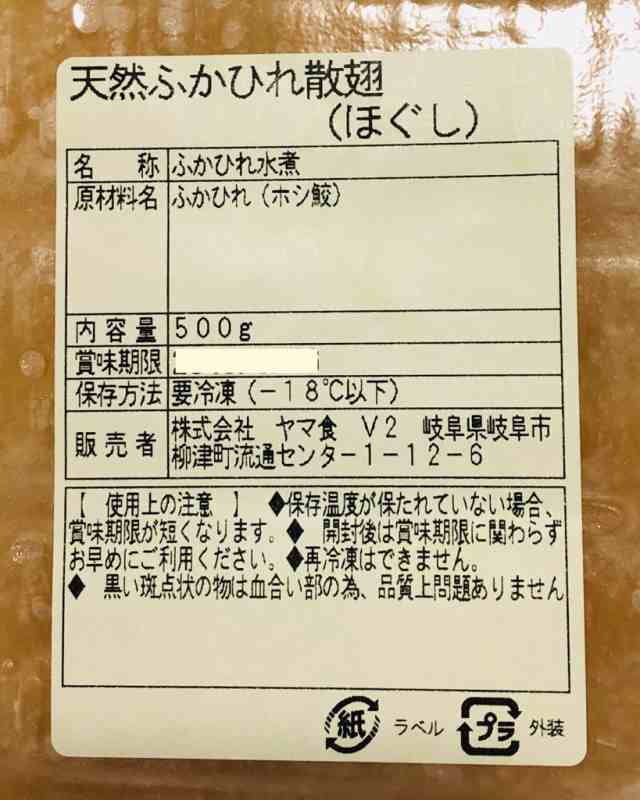 天然ふかひれ散翅
(ほぐし)
名 称 ふかひれ水煮
原材料名 ふかひれ(ホシ鮫)
内容量 500g
賞味期限
保存方法 要冷凍(-18℃以下)
販売者 株式会社 ヤマ食 V2 岐阜県岐阜市
柳津町流通センター1-12-6
【 使用上の注意 】 ◆保存温度が保たれていない場合、
賞味期限が短くなります。◆ 開封後は賞味期限に関わらず
お早めにご利用ください。◆再冷凍はできません。
◆ 黒い斑点状の物は血合い部の為、品質上問題ありません
紙 ラベル プラ 外装